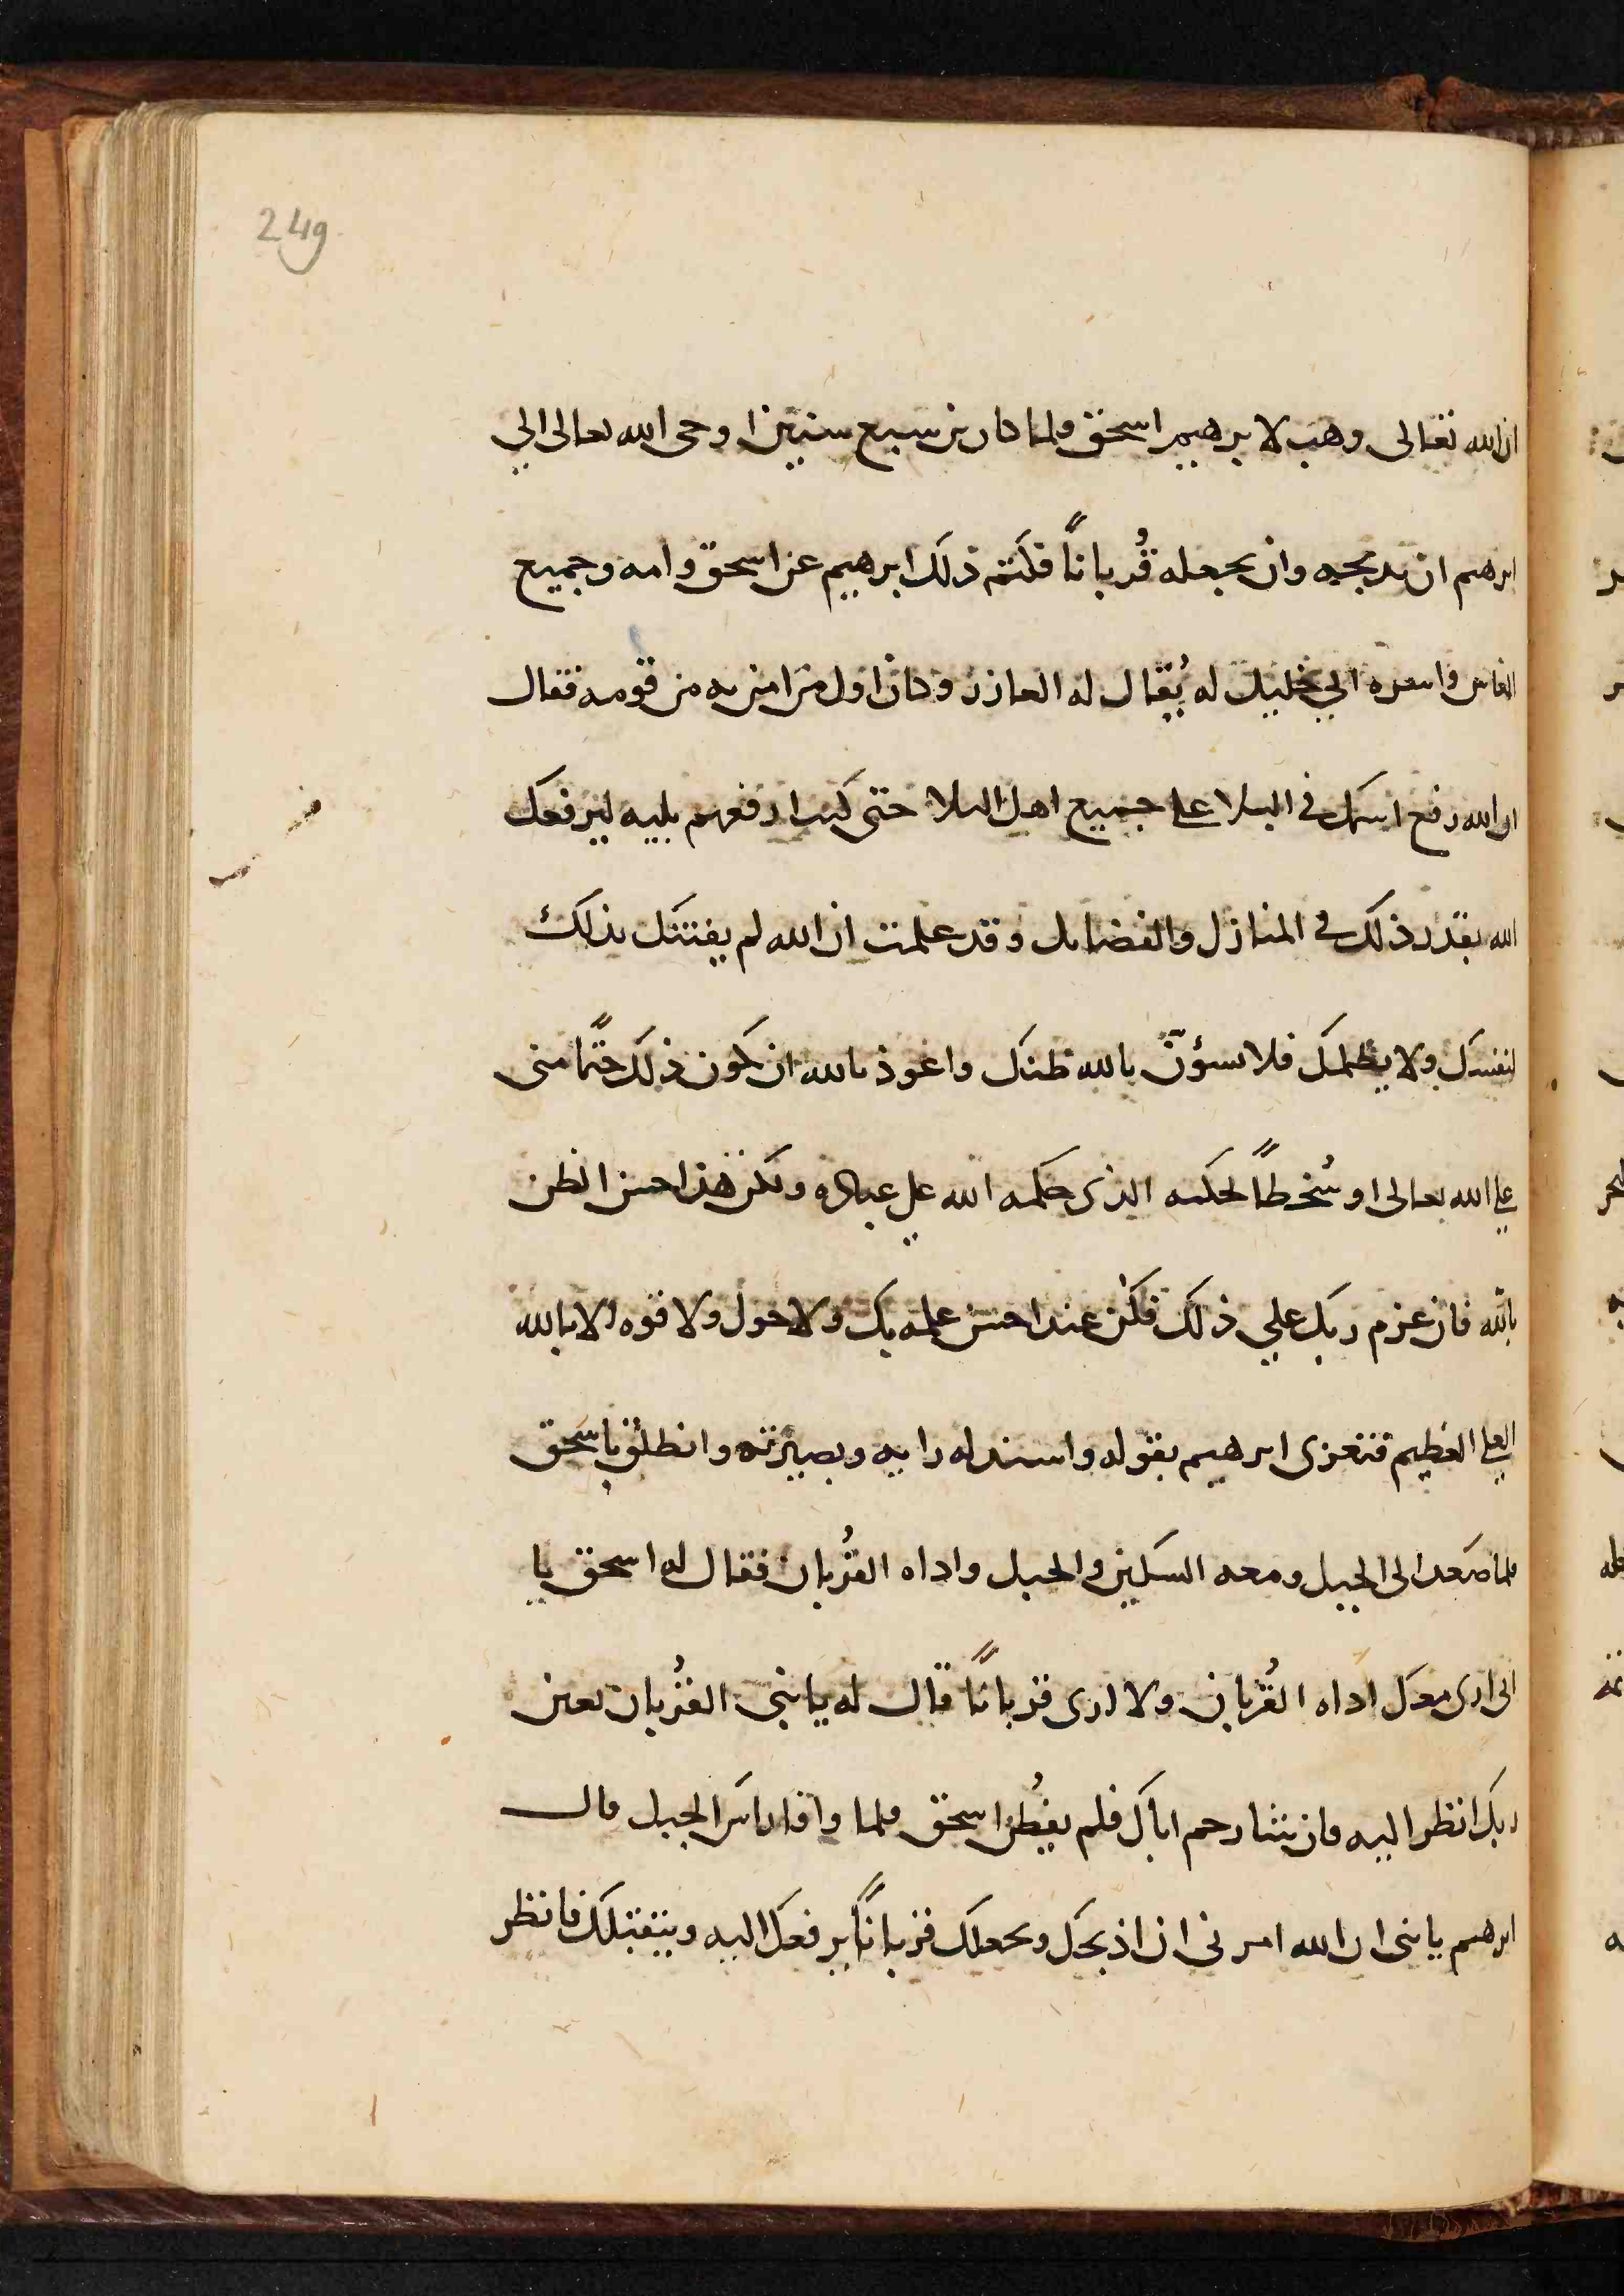 249
ان الله تعالى وهب لابرهيم اسحق ولما كان بن سبع سنين اوحى الله تعالى الي
ابرهيم ان يدبحه وان يجعله قُرباناً فكتم ذلك ابرهيم عن اسحق وامه وجميع
الناس واسره الي خليل له يُقال له العازر وكان اول من امن به من قومه فقال
ان الله رفع اسمك في البلا على جميع اهل البلا حتى كنت ارفعهم بليه ليرفعك
الله بقدر ذلك في المنازل والفضايل وقد علمت ان الله لم يفتنك بذلك
لنفسك ولا يظلمك فلا يسؤنّ بالله ظنك واعوذ بالله ان يكون ذلك حتماً منى
على الله تعالى او سُخطاً لحكمه الذى حكمه الله على عباده ولكن هذا حسن الظن
بالله فان عزم ربك علي ذلك فكن عند احسن علمه بك ولا حول ولا قوه الا بالله
العلي العظيم فتعزى ابرهيم بقوله واسند له رايه وبصيرته وانطلق باسحق
فلما صعد الى الجبل ومعه السكين والحبل واداه القُربان فقال له اسحق يا
ابى ارى معك اداه القُربان ولا ارى قرباناً قال له يا بنى القُربان بعين
ربك انظر اليه فان يشا رحم اباك فلم يفطُن اسحق فلما وافا راس الجبل قال
ابرهيم يا بنى ان الله امرنى ان اذبحك ويجعلك قرباناً يرفعك اليه ويتقبلك فانظر